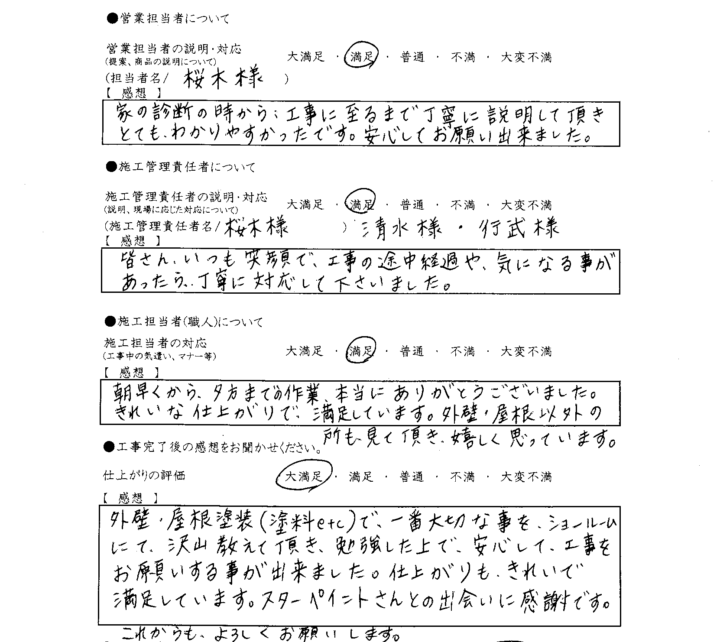 ●営業担当者について
営業担当者の説明・対応
(提案、商品の説明について)
大満足 ・ 満足 ・ 普通 ・ 不満 ・ 大変不満
(担当者名/ 桜木様 )
【 感想 】
家の診断の時から、工事に至るまで丁寧に説明して頂き
とても、わかりやすかったです。安心してお願い出来ました。
●施工管理責任者について
施工管理責任者の説明・対応
(説明、現場に応じた対応について)
大満足 ・ 満足 ・ 普通 ・ 不満 ・ 大変不満
(施工管理責任者名/桜木様 ) 清水様・行武様
【 感想 】
皆さん、いつも笑顔で、工事の途中経過や、気になる事が
あったら、丁寧に対応して下さいました。
●施工担当者(職人)について
施工担当者の対応
(工事中の気遣い、マナー等)
大満足 ・ 満足 ・ 普通 ・ 不満 ・ 大変不満
【 感想 】
朝早くから、夕方までの作業、本当にありがとうございました。
きれいな仕上がりで、満足しています。外壁・屋根以外の
所も、見て頂き、嬉しく思っています。
●工事完了後の感想をお聞かせください。
仕上がりの評価
大満足 ・ 満足 ・ 普通 ・ 不満 ・ 大変不満
【 感想 】
外壁・屋根塗装(塗料etc)で、一番大切な事を、ショールーム
にて、沢山教えて頂き、勉強した上で、安心して、工事を
お願いする事が出来ました。仕上がりも、きれいで
満足しています。スターペイントさんとの出会いに感謝です。
これからも、よろしくお願いします。